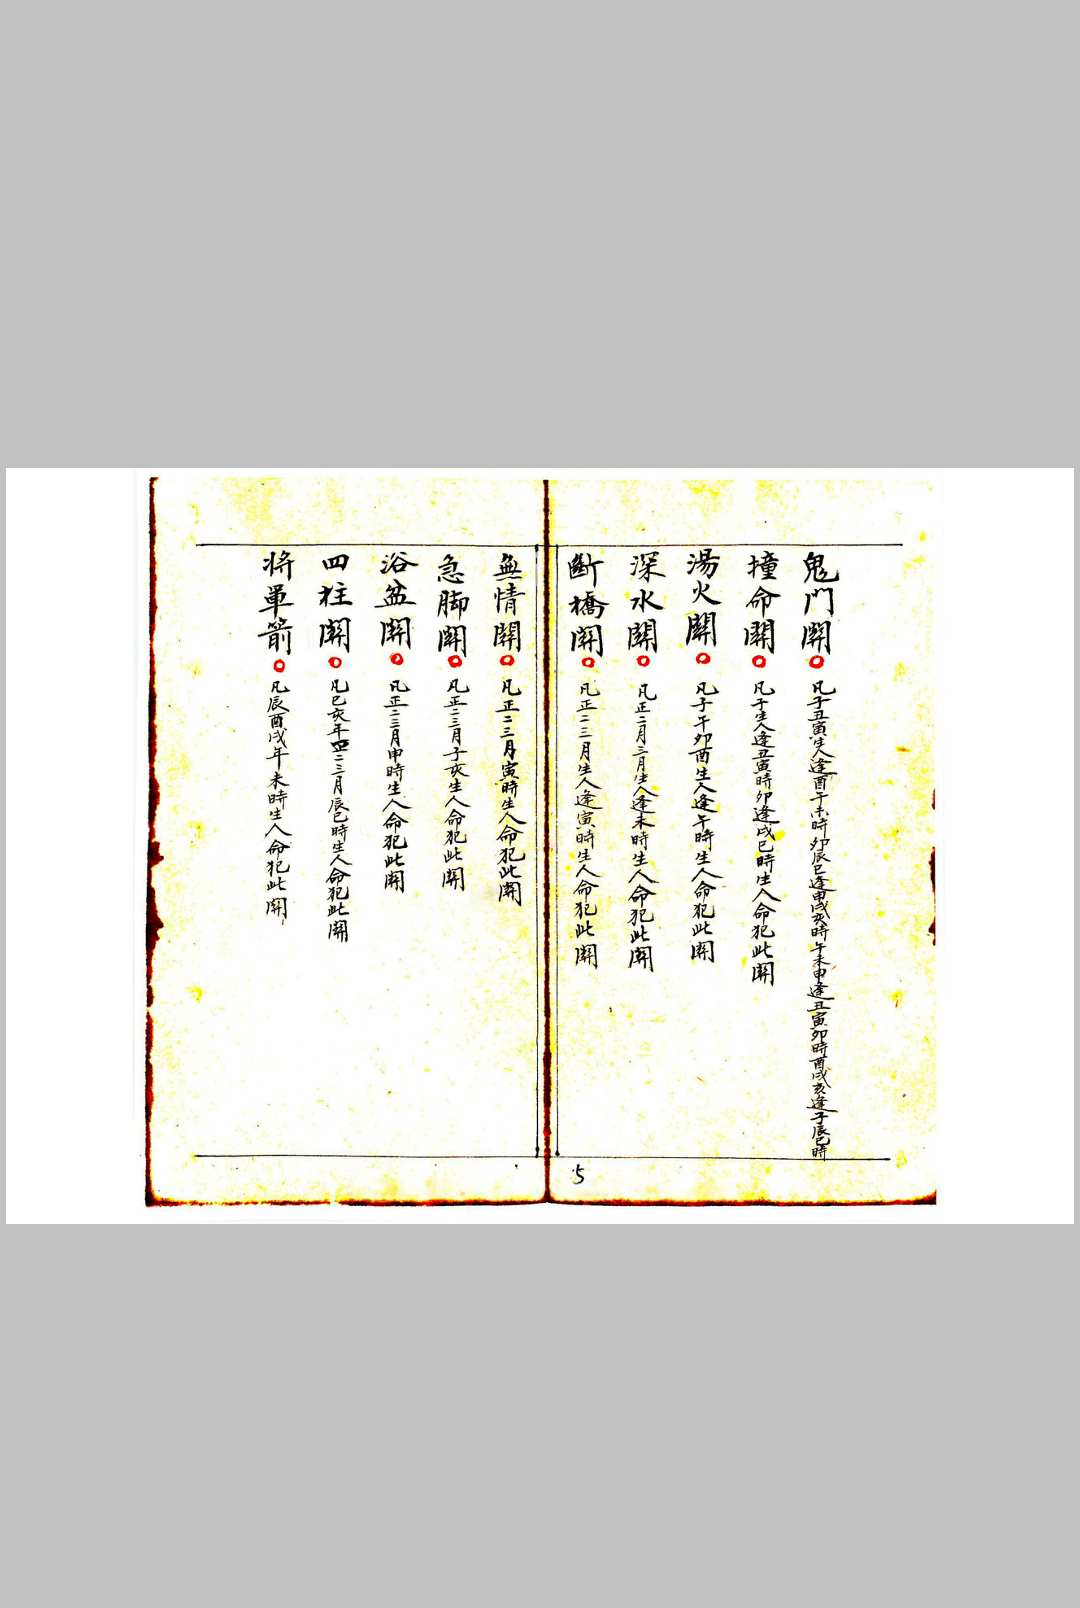 鬼門關 凡子丑寅生人逢酉午未時卯辰巳逢申戌亥時午未申逢丑寅卯時酉戌亥逢子辰巳時
撞命關 凡子生人逢丑寅時卯逢戌巳時生人命犯此關
湯火關 凡子午卯酉生人逢午時生人命犯此關
深水關 凡正二月三月生人逢未時生人命犯此關
斷橋關 凡正二三月生人逢寅時生人命犯此關
無情關 凡正二三月寅時生人命犯此關
急脚關 凡正二三月子亥生人命犯此關
浴盆關 凡正二三月申時生人命犯此關
四柱關 凡巳亥年四二三月辰巳時生人命犯此關
將軍箭 凡辰酉戌年未時生人命犯此關
5